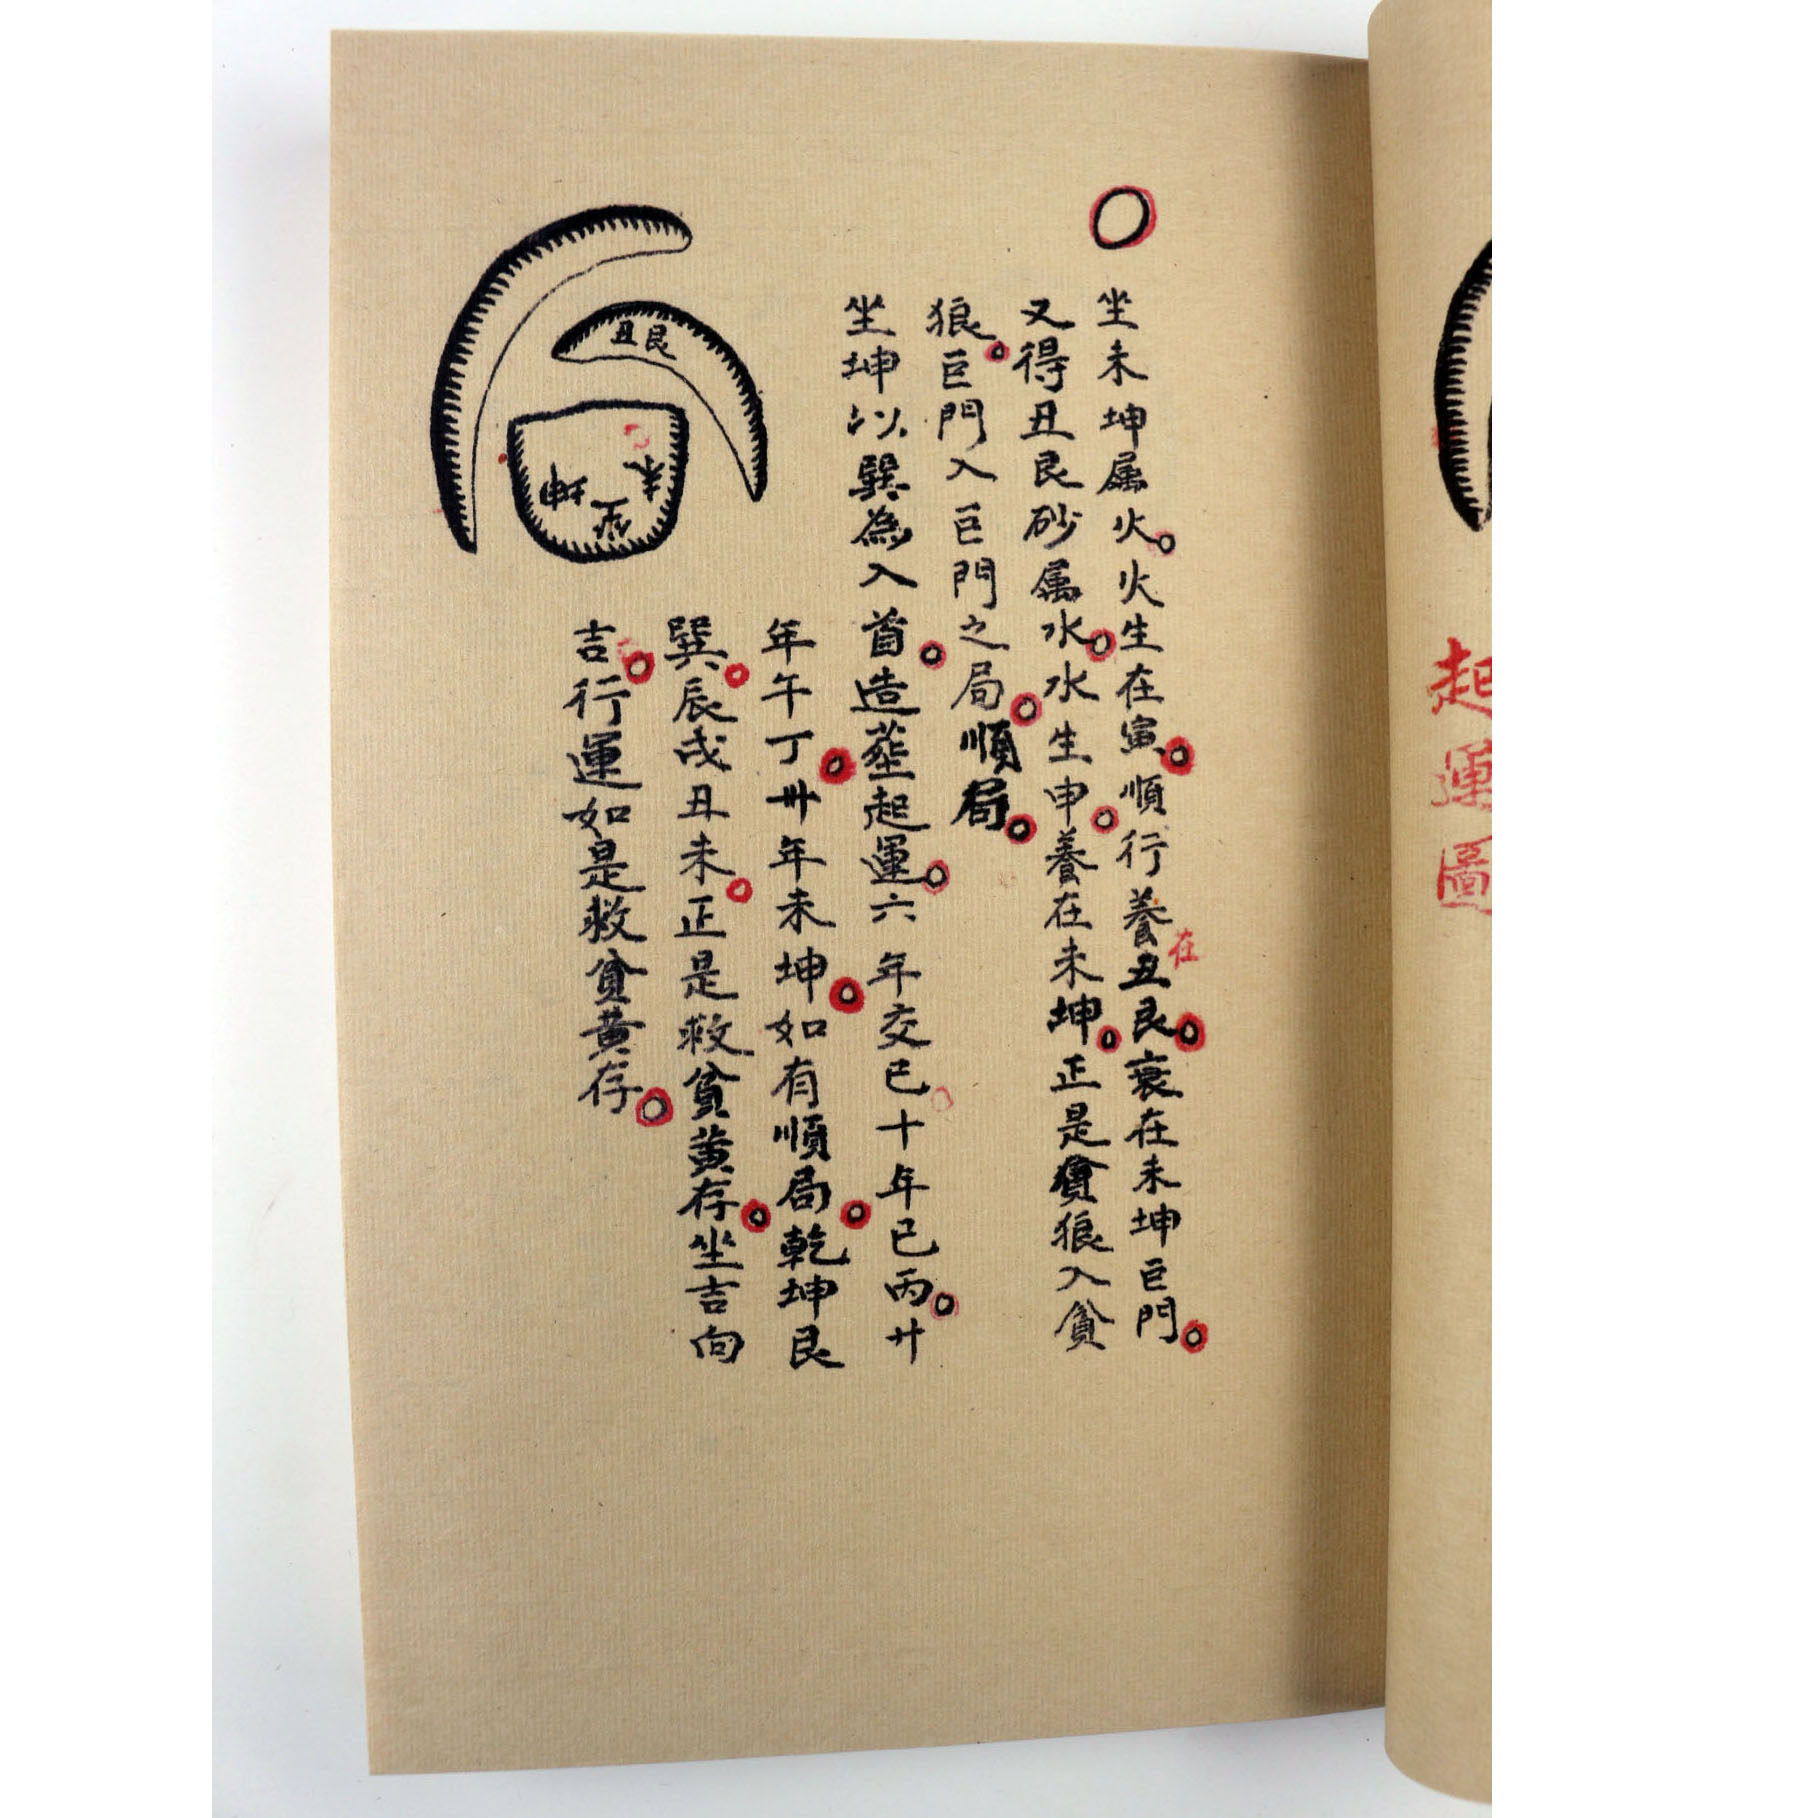 坐未坤属火。火生在寅。順行養在丑艮。衰在未坤巨門。
又得丑艮砂属水。水生申。養在未坤。正是貪狼入貪
狼。巨門入巨門之局。順局。
坐坤以巽為入首。造塟起運。六年交巳十年巳丙。廾
年午丁。卅年未坤。如有順局。乾坤艮
巽。辰戌丑未。正是救貧黄存。坐吉向
吉。行運如是救貧黄存。
丑艮
未
坤
起運圖